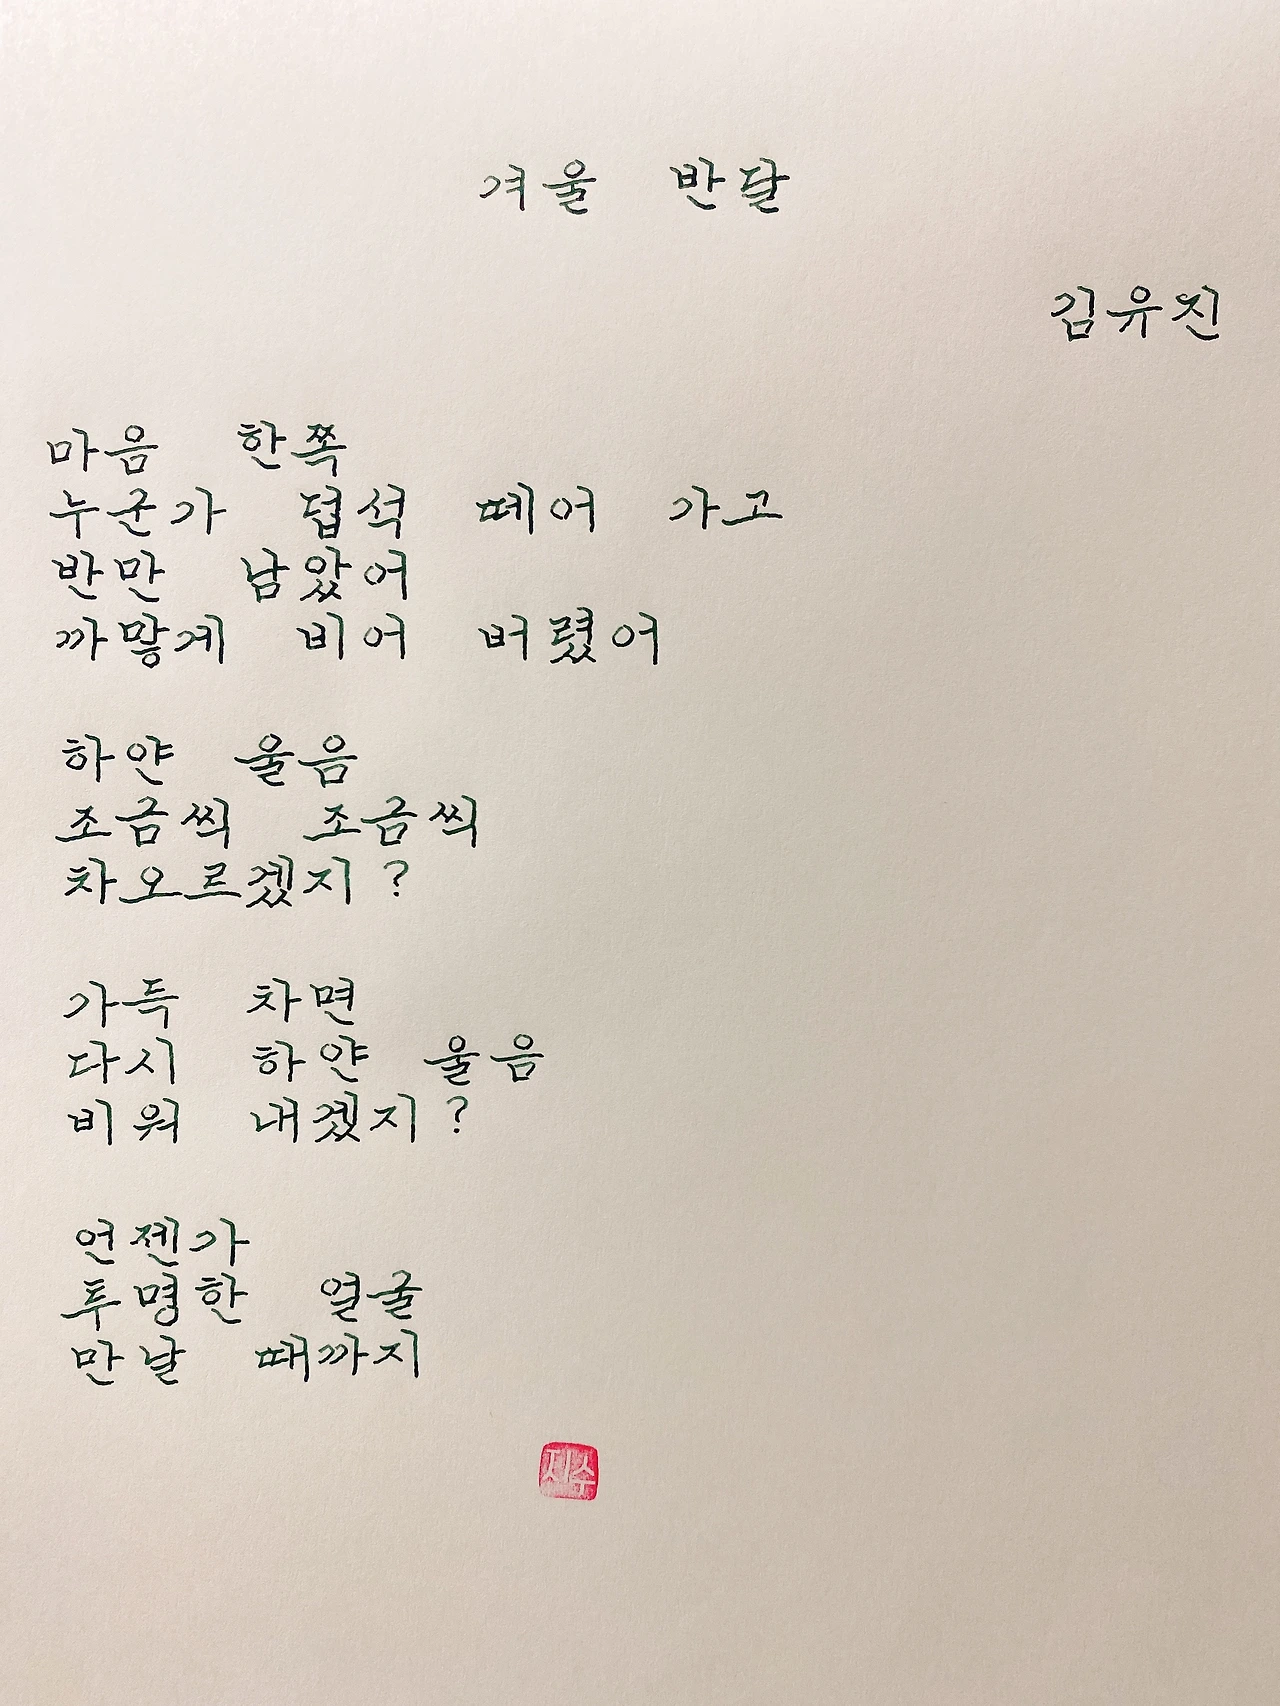 겨울 반달
김유진
마음 한쪽
누군가 덥석 떼어 가고
반만 남았어
까맣게 비어 버렸어
하얀 울음
조금씩 조금씩
차오르겠지?
가득 차면
다시 하얀 울음
비워 내겠지?
언젠가
투명한 얼굴
만날 때까지
지수